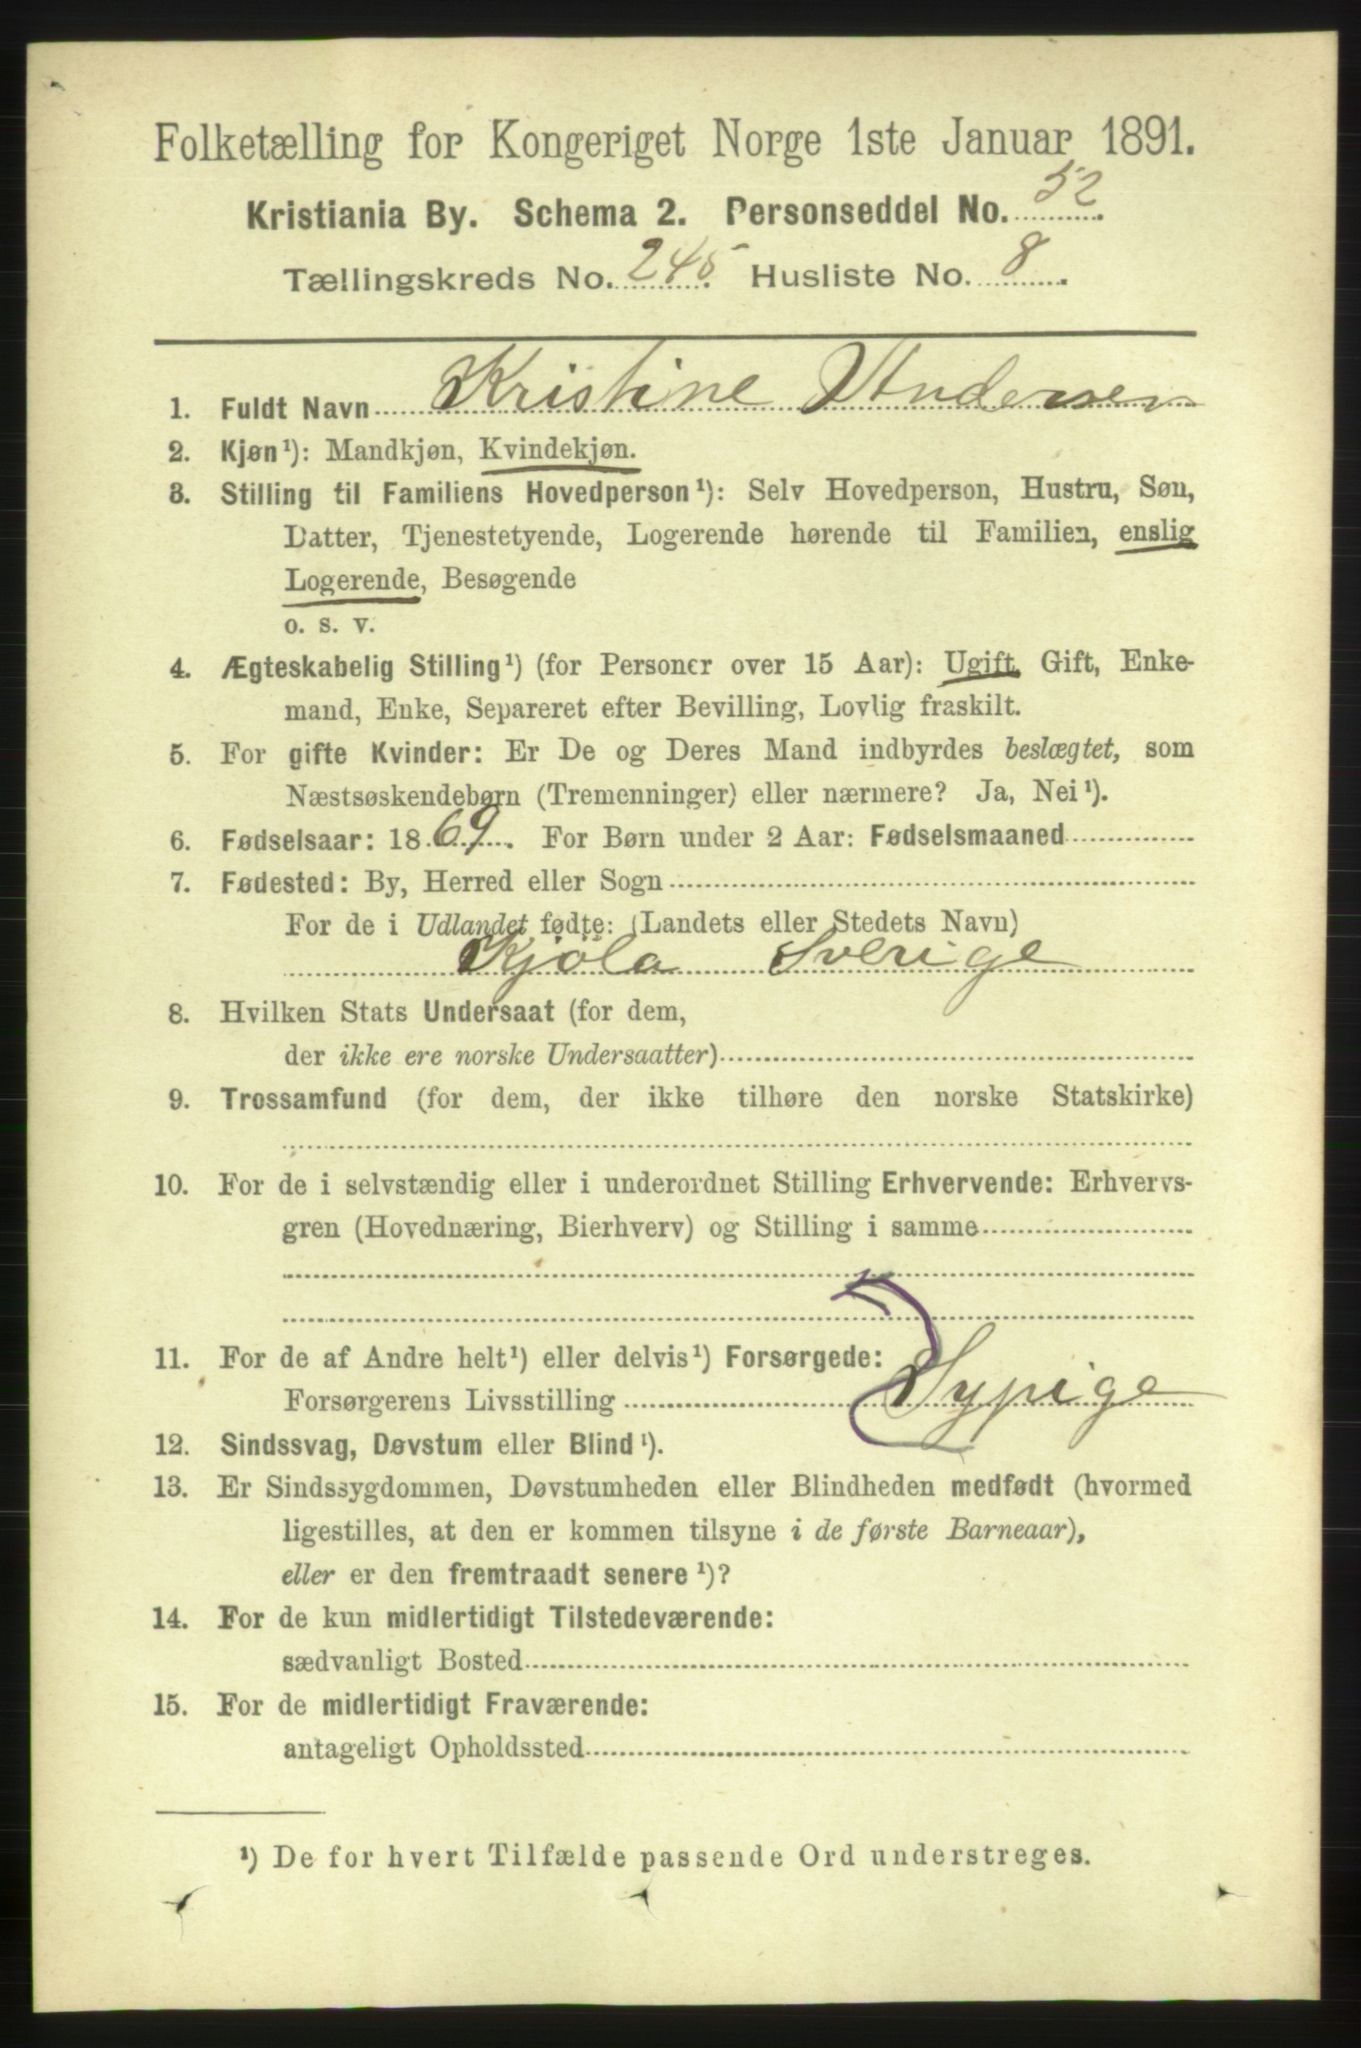 Folketælling for Kongeriget Norge 1ste Januar 1891.
Kristiania By. Schema 2. Personseddel No. 52.
Tællingskreds No. 245. Husliste No. 8.
1. Fuldt Navn Kristine Andersen
2. Kjøn¹): Mandkjøn, Kvindekjøn.
3. Stilling til Familiens Hovedperson¹): Selv Hovedperson, Hustru, Søn,
Datter, Tjenestetyende, Logerende hørende til Familien, enslig
Logerende, Besøgende
o. s. v.
4. Ægteskabelig Stilling¹) (for Personer over 15 Aar): Ugift, Gift, Enke-
mand, Enke, Separeret efter Bevilling, Lovlig fraskilt.
5. For gifte Kvinder: Er De og Deres Mand indbyrdes beslægtet, som
Næstsøskendebørn (Tremenninger) eller nærmere? Ja, Nei¹).
6. Fødselsaar: 1869. For Børn under 2 Aar: Fødselsmaaned
7. Fødested: By, Herred eller Sogn
For de i Udlandet fødte: (Landets eller Stedets Navn)
Kjöla Sverige
8. Hvilken Stats Undersaat (for dem,
der ikke ere norske Undersaatter)
9. Trossamfund (for dem, der ikke tilhøre den norske Statskirke)
10. For de i selvstændig eller i underordnet Stilling Erhvervende: Erhvervs-
gren (Hovednæring, Bierhverv) og Stilling i samme
11. For de af Andre helt¹) eller delvis¹) Forsørgede:
Forsørgerens Livsstilling Sypige
12. Sindssvag, Døvstum eller Blind¹).
13. Er Sindssygdommen, Døvstumheden eller Blindheden medfødt (hvormed
ligestilles, at den er kommen tilsyne i de første Barneaar),
eller er den fremtraadt senere¹)?
14. For de kun midlertidigt Tilstedeværende:
sædvanligt Bosted
15. For de midlertidigt Fraværende:
antageligt Opholdssted
¹) De for hvert Tilfælde passende Ord understreges.